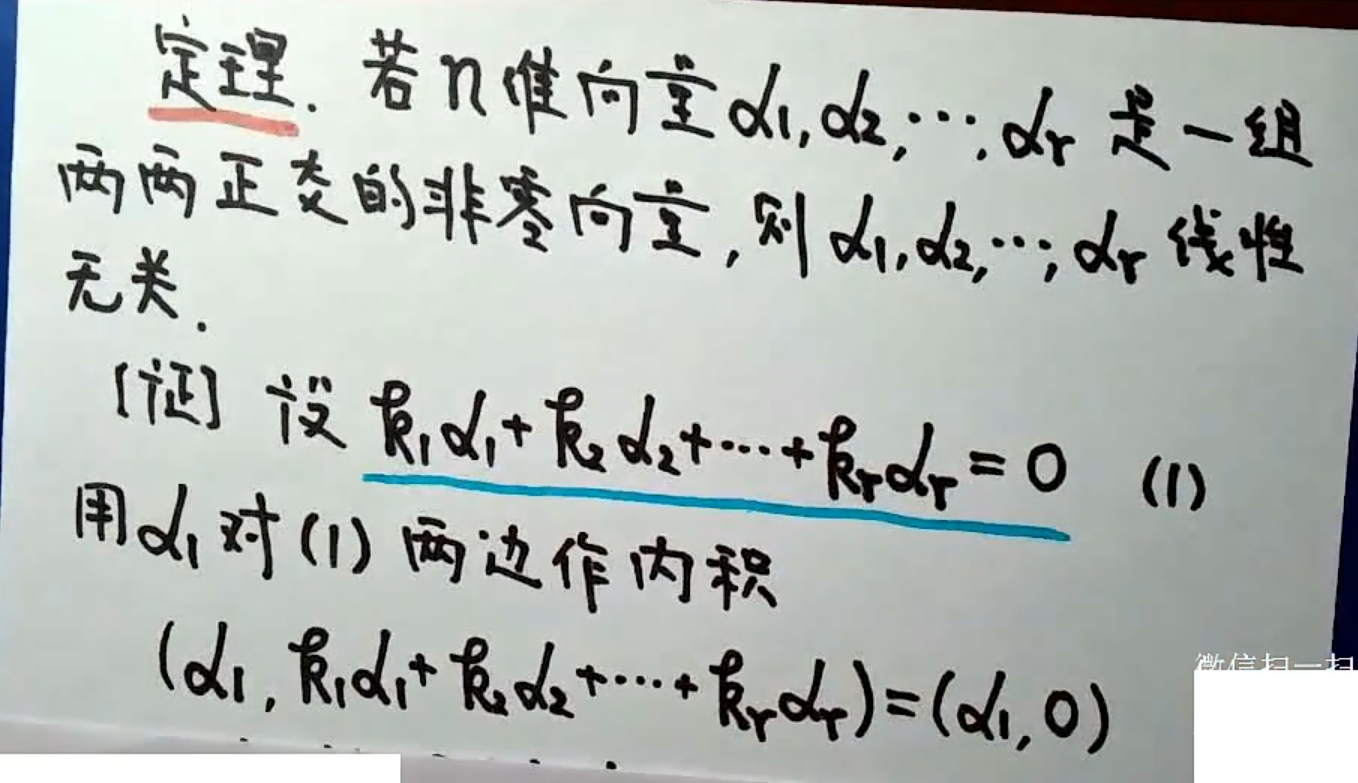 定理. 若n维向量α1,α2,…,αr是一组
两两正交的非零向量,则α1,α2,…,αr线性
无关.
[证] 设 k1α1+k2α2+…+krαr=0 (1)
用α1对(1)两边作内积
(α1, k1α1+k2α2+…+krαr)=(α1,0)
微信扫一扫